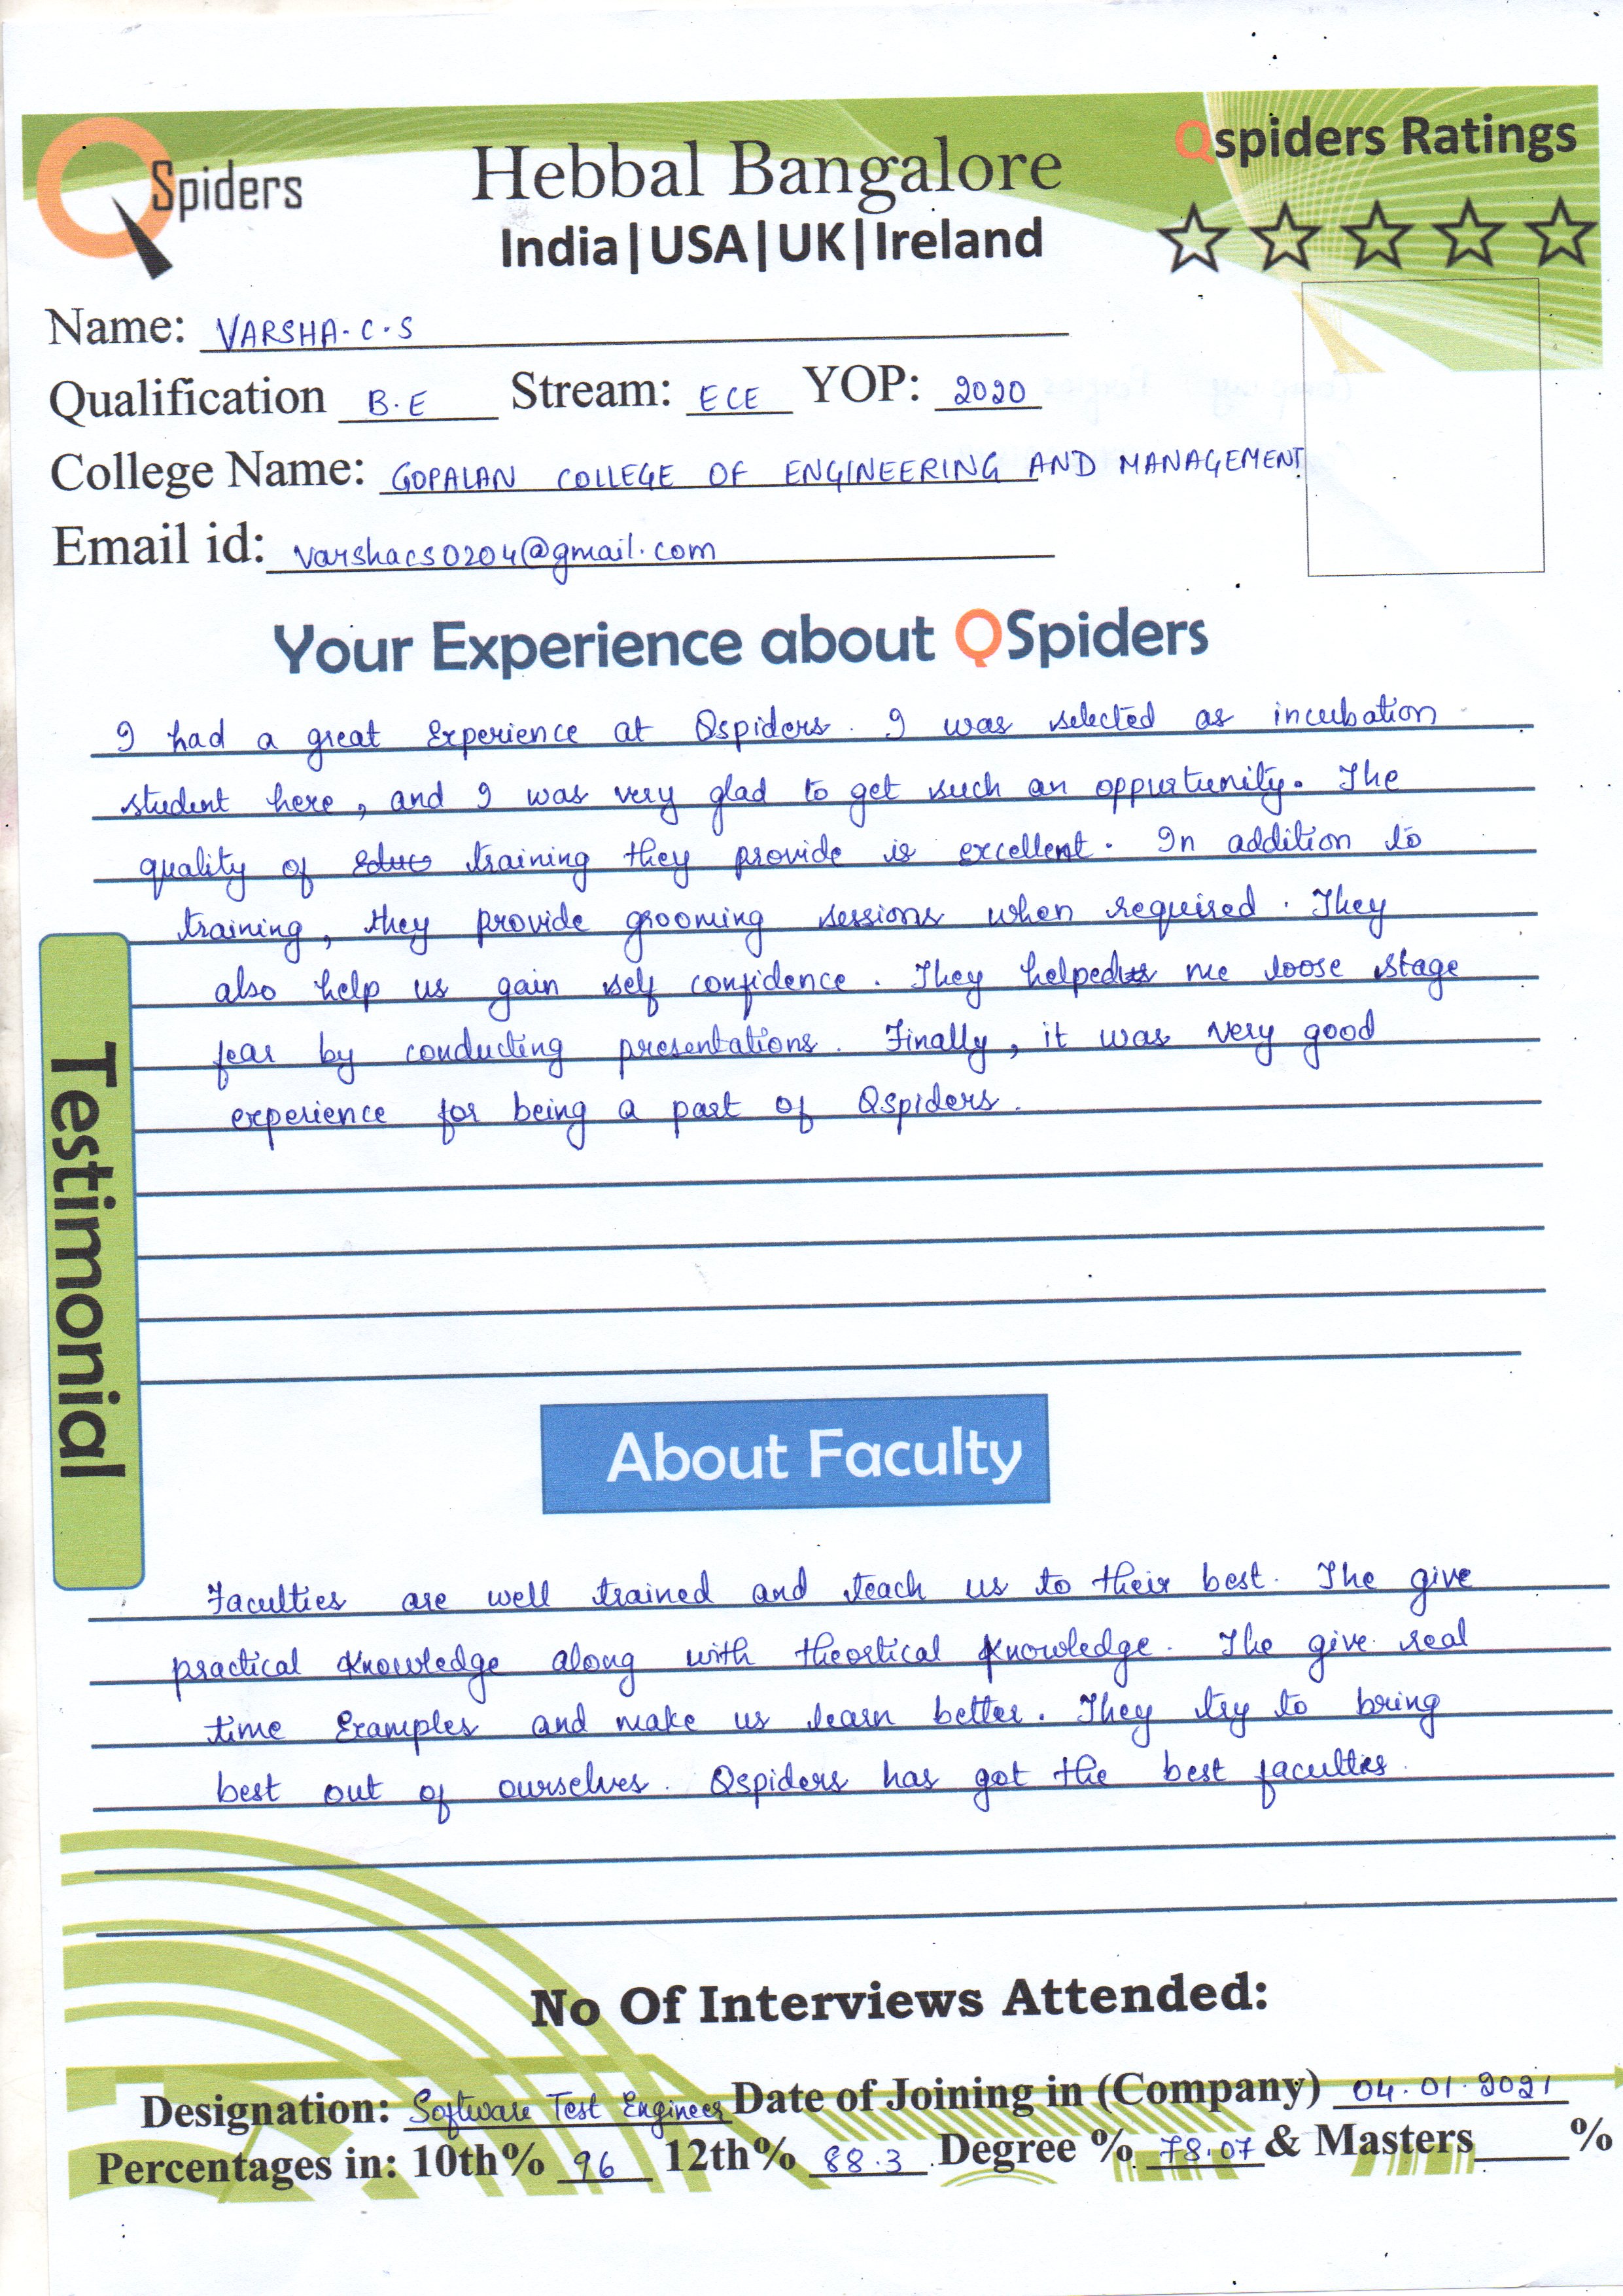 QSpiders
Hebbal Bangalore
India|USA|UK|Ireland
Qspiders Ratings
Name: VARSHA.C.S
Qualification B.E Stream: ECE YOP: 2020
College Name: GOPALAN COLLEGE OF ENGINEERING AND MANAGEMENT
Email id: varshacs0204@gmail.com
Your Experience about QSpiders
I had a great Experience at Qspiders. I was selected as incubation
student here, and I was very glad to get such an oppurtunity. The
quality of training they provide is excellent. In addition to
training, they provide grooming sessions when required. They
also help us gain self confidence. They helped me loose stage
fear by conducting presentations. Finally, it was very good
experience for being a part of Qspiders.
Testimonial
About Faculty
Faculties are well trained and teach us to their best. The give
practical knowledge along with theortical knowledge. The give real
time Examples and make us learn better. They try to bring
best out of ourselves. Qspiders has got the best faculties.
No Of Interviews Attended:
Designation: Software Test Engineer Date of Joining in (Company) 04.01.2021
Percentages in: 10th% 96 12th% 88.3 Degree % 78.07 & Masters %